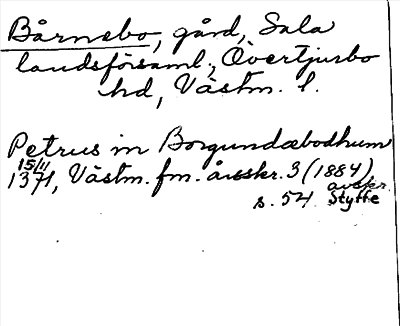 Bårnebo, gård, Sala
landsförsaml., Övertjurbo
hd, Västm. l.
Petrus in Borgundæbodhum
15/11
1371, Västm. fm. årsskr. 3 (1884),
avskr.
s. 54. Styffe